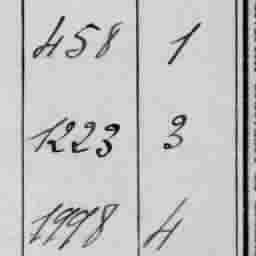 458 1
1223 3
1998 4